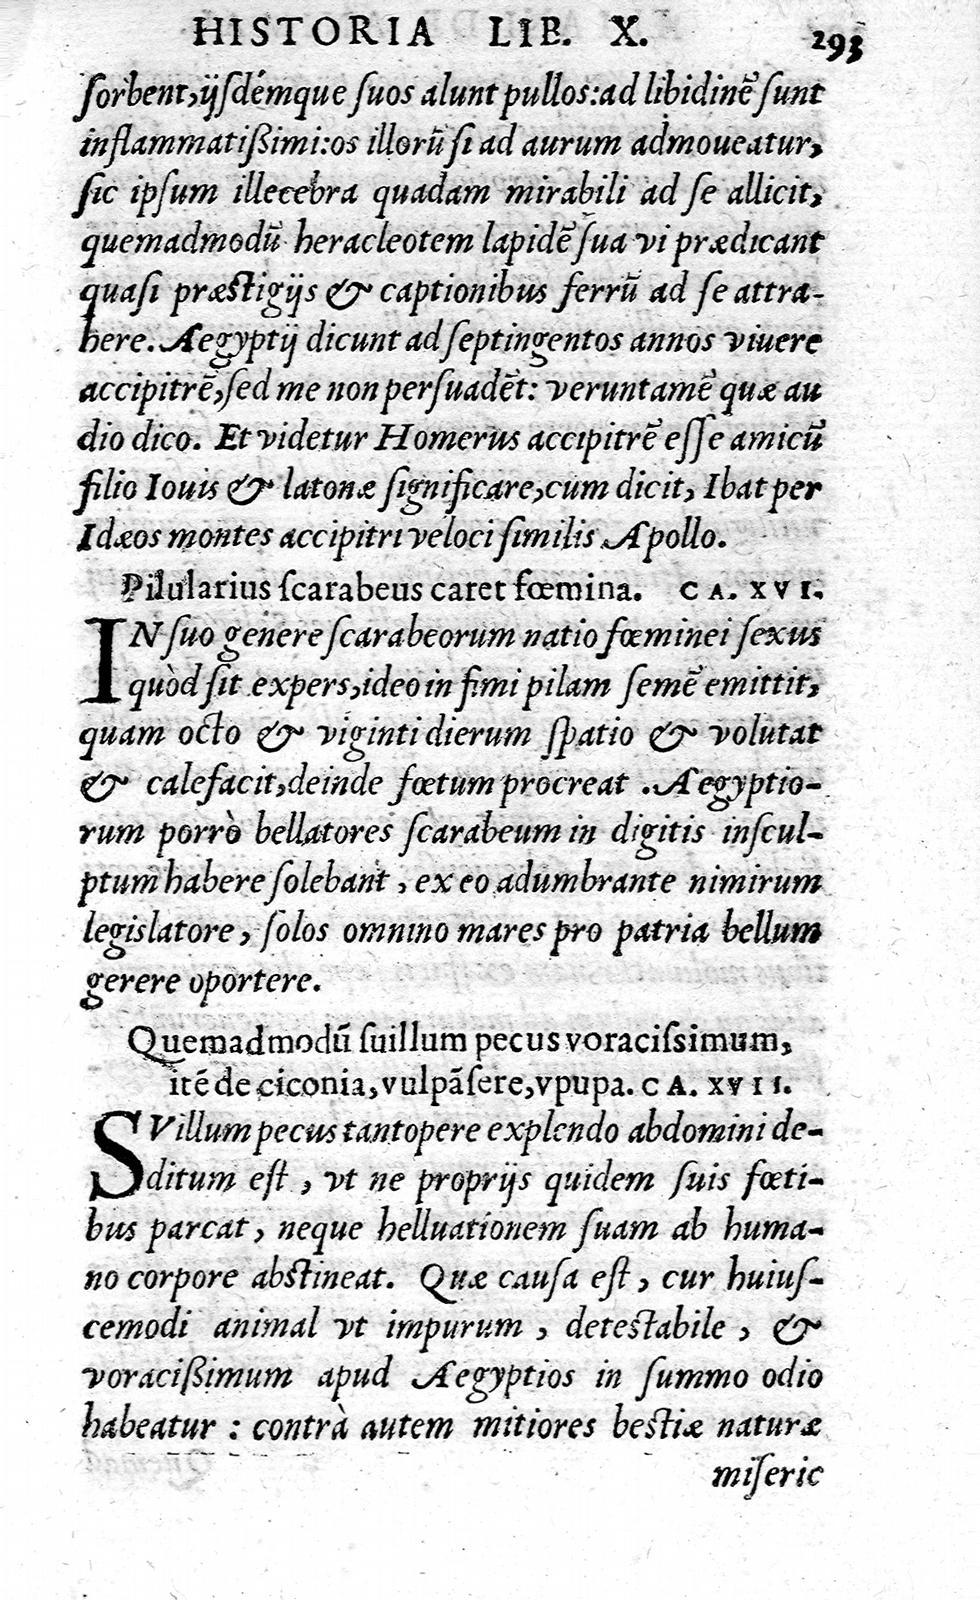 HISTORIA LIB. X. 293
ſorbent, ijſdémque ſuos alunt pullos: ad libidinẽ ſunt
inflammatißimi: os illorũ ſi ad aurum admoueatur,
ſic ipſum illecebra quadam mirabili ad ſe allicit,
quemadmodũ heracleotem lapidẽ ſua vi prædicant
quaſi præstigijs & captionibus ferrũ ad ſe attra-
here. Aegyptij dicunt ad ſeptingentos annos viuere
accipitrẽ, ſed me non perſuadẽt: veruntamẽ quæ au
dio dico. Et videtur Homerus accipitrẽ eſſe amicũ
filio Iouis & latonæ ſignificare, cùm dicit, Ibat per
Idæos montes accipitri veloci ſimilis Apollo.
Pilularius ſcarabeus caret fœmina. CA. XVI.
IN ſuo genere ſcarabeorum natio fœminei ſexus
quòd ſit expers, ideo in fimi pilam ſemẽ emittit,
quam octo & viginti dierum ſpatio & volutat
& calefacit, deinde fœtum procreat. Aegyptio-
rum porrò bellatores ſcarabeum in digitis inſcul-
ptum habere ſolebant, ex eo adumbrante nimirum
legislatore, ſolos omnino mares pro patria bellum
gerere oportere.
Quemadmodũ ſuillum pecus voraciſsimum,
itẽ de ciconia, vulpãſere, vpupa. CA. XVII.
SVillum pecus tantopere explendo abdomini de-
ditum eſt, vt ne proprijs quidem ſuis fœti-
bus parcat, neque helluationem ſuam ab huma-
no corpore abstineat. Quæ cauſa eſt, cur huiuſ-
cemodi animal vt impurum, detestabile, &
voracißimum apud Aegyptios in ſummo odio
habeatur: contrà autem mitiores bestiæ naturæ
miſeric